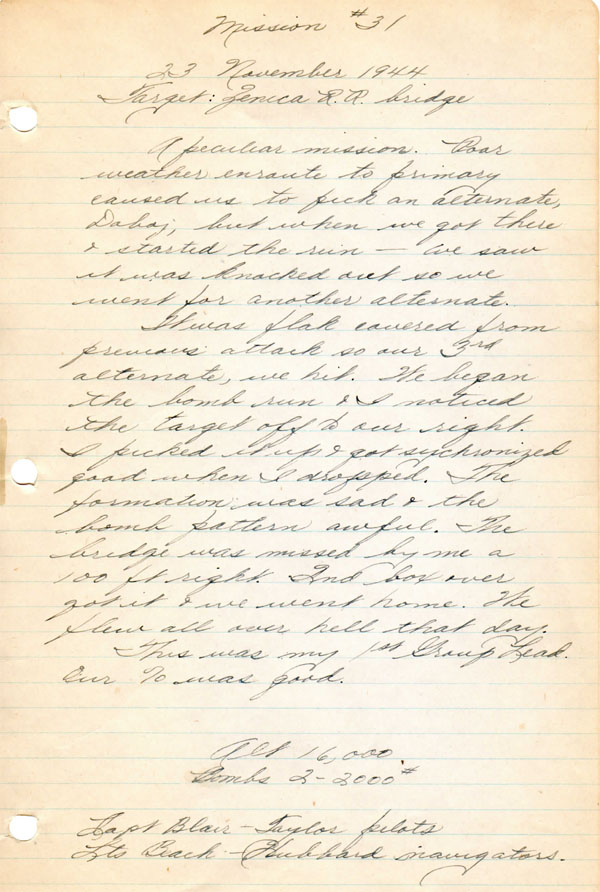 Mission #31
23 November 1944
Target: Zenica R.R. bridge
A peculiar mission. Poor
weather enroute to primary
caused us to pick an alternate,
Doboj, but when we got there
& started the run — we saw
it was knocked out so we
went for another alternate.
It was flak covered from
previous attack so our 3rd
alternate, we hit. We began
the bomb run & I noticed
the target off to our right.
I picked it up & got sychronized
good when I dropped. The
formation was sad & the
bomb pattern awful. The
bridge was missed by me a
100 ft right. 2nd box over
got it & we went home. We
flew all over hell that day.
This was my 1st Group Lead.
Our % was good.
Alt 16,000
Bombs 2-2000#
Capt Blair - Taylor pilots
Lts Beach - Hubbard navigators.